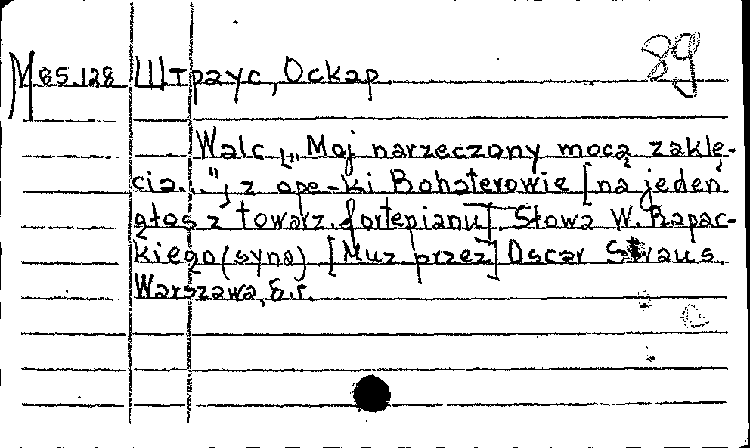 89
M 85.128 Штраус, Оскар.
Walc „Moj narzeczony mocą zaklę-
cia..."; z ope-ki Bohaterowie [na jeden
głos z towarz. fortepianu]. Słowa W. Rapac-
kiego (syna) [Muz przez] Oscar Straus.
Warszawa, б.г.